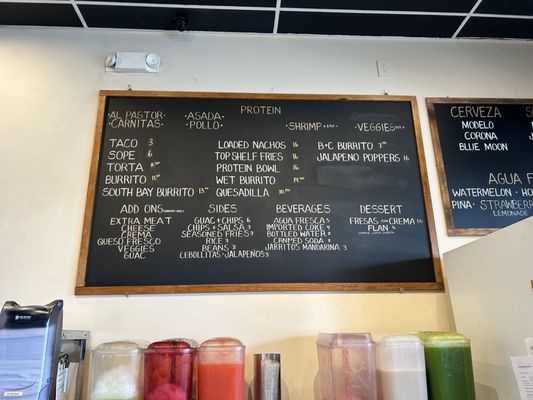 PROTEIN
·AL PASTOR·
·CARNITAS·
·ASADA·
·POLLO·
·SHRIMP
·VEGGIES·
TACO 3
SOPE 6
TORTA
BURRITO
SOUTH BAY BURRITO 13
LOADED NACHOS 16
TOP SHELF FRIES 16
PROTEIN BOWL 16
WET BURRITO
QUESADILLA
B+C BURRITO
JALAPENO POPPERS 16
ADD ONS
EXTRA MEAT
CHEESE
CREMA
QUESO FRESCO
VEGGIES
GUAC
SIDES
GUAC + CHIPS 6
CHIPS + SALSA 3
SEASONED FRIES
RICE 3
BEANS 3
CEBOLLITAS + JALAPEÑOS
BEVERAGES
AGUA FRESCA 5
IMPORTED COKE 4
BOTTLED WATER
CANNED SODA
JARRITOS MANDARINA 3
DESSERT
FRESAS CON CREMA 10
FLAN 5
CERVEZA
MODELO
CORONA
BLUE MOON
AGUA F
WATERMELON · HO
PINA · STRAWBER
LEMONADE